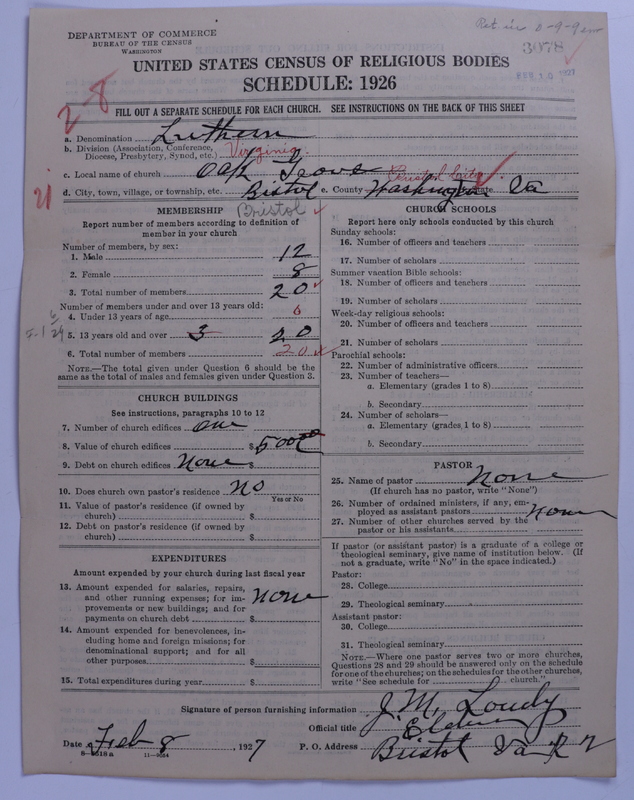 DEPARTMENT OF COMMERCE
BUREAU OF THE CENSUS
WASHINGTON
3078
FEB 10 1927
UNITED STATES CENSUS OF RELIGIOUS BODIES
SCHEDULE: 1926
28
FILL OUT A SEPARATE SCHEDULE FOR EACH CHURCH. SEE INSTRUCTIONS ON THE BACK OF THIS SHEET
a. Denomination Lutheran
b. Division (Association, Conference, Diocese, Presbytery, Synod, etc.) Virginia
c. Local name of church Oak Grove Bristol City
d. City, town, village, or township, etc. Bristol e. County Washington State Va
Bristol
MEMBERSHIP
Report number of members according to definition of member in your church
Number of members, by sex:
1. Male 12
2. Female 8
3. Total number of members 20
Number of members under and over 13 years old:
4. Under 13 years of age 0
5. 13 years old and over 3 20
6. Total number of members 20
NOTE.—The total given under Question 6 should be the same as the total of males and females given under Question 3.
CHURCH BUILDINGS
See instructions, paragraphs 10 to 12
7. Number of church edifices one
8. Value of church edifices $ 500 00
9. Debt on church edifices None $
10. Does church own pastor's residence No
Yes or No
11. Value of pastor's residence (if owned by church) $
12. Debt on pastor's residence (if owned by church) $
EXPENDITURES
Amount expended by your church during last fiscal year
13. Amount expended for salaries, repairs, and other running expenses; for improvements or new buildings; and for payments on church debt $ None
14. Amount expended for benevolences, including home and foreign missions; for denominational support; and for all other purposes $
15. Total expenditures during year $
CHURCH SCHOOLS
Report here only schools conducted by this church
Sunday schools:
16. Number of officers and teachers
17. Number of scholars
Summer vacation Bible schools:
18. Number of officers and teachers
19. Number of scholars
Week-day religious schools:
20. Number of officers and teachers
21. Number of scholars
Parochial schools:
22. Number of administrative officers
23. Number of teachers—
a. Elementary (grades 1 to 8)
b. Secondary
24. Number of scholars—
a. Elementary (grades 1 to 8)
b. Secondary
PASTOR
25. Name of pastor None
(If church has no pastor, write "None")
26. Number of ordained ministers, if any, employed as assistant pastors None
27. Number of other churches served by the pastor or his assistants
If pastor (or assistant pastor) is a graduate of a college or theological seminary, give name of institution below. (If not a graduate, write "No" in the space indicated.)
Pastor:
28. College
29. Theological seminary
Assistant pastor:
30. College
31. Theological seminary
NOTE.—Where one pastor serves two or more churches, Questions 28 and 29 should be answered only on the schedule for one of the churches; on the schedules for the other churches, write "See schedule for church."
Signature of person furnishing information J. M. Loudy
Official title Elder
Date Feb 8, 1927 P. O. Address Bristol Va R 2
11—3034